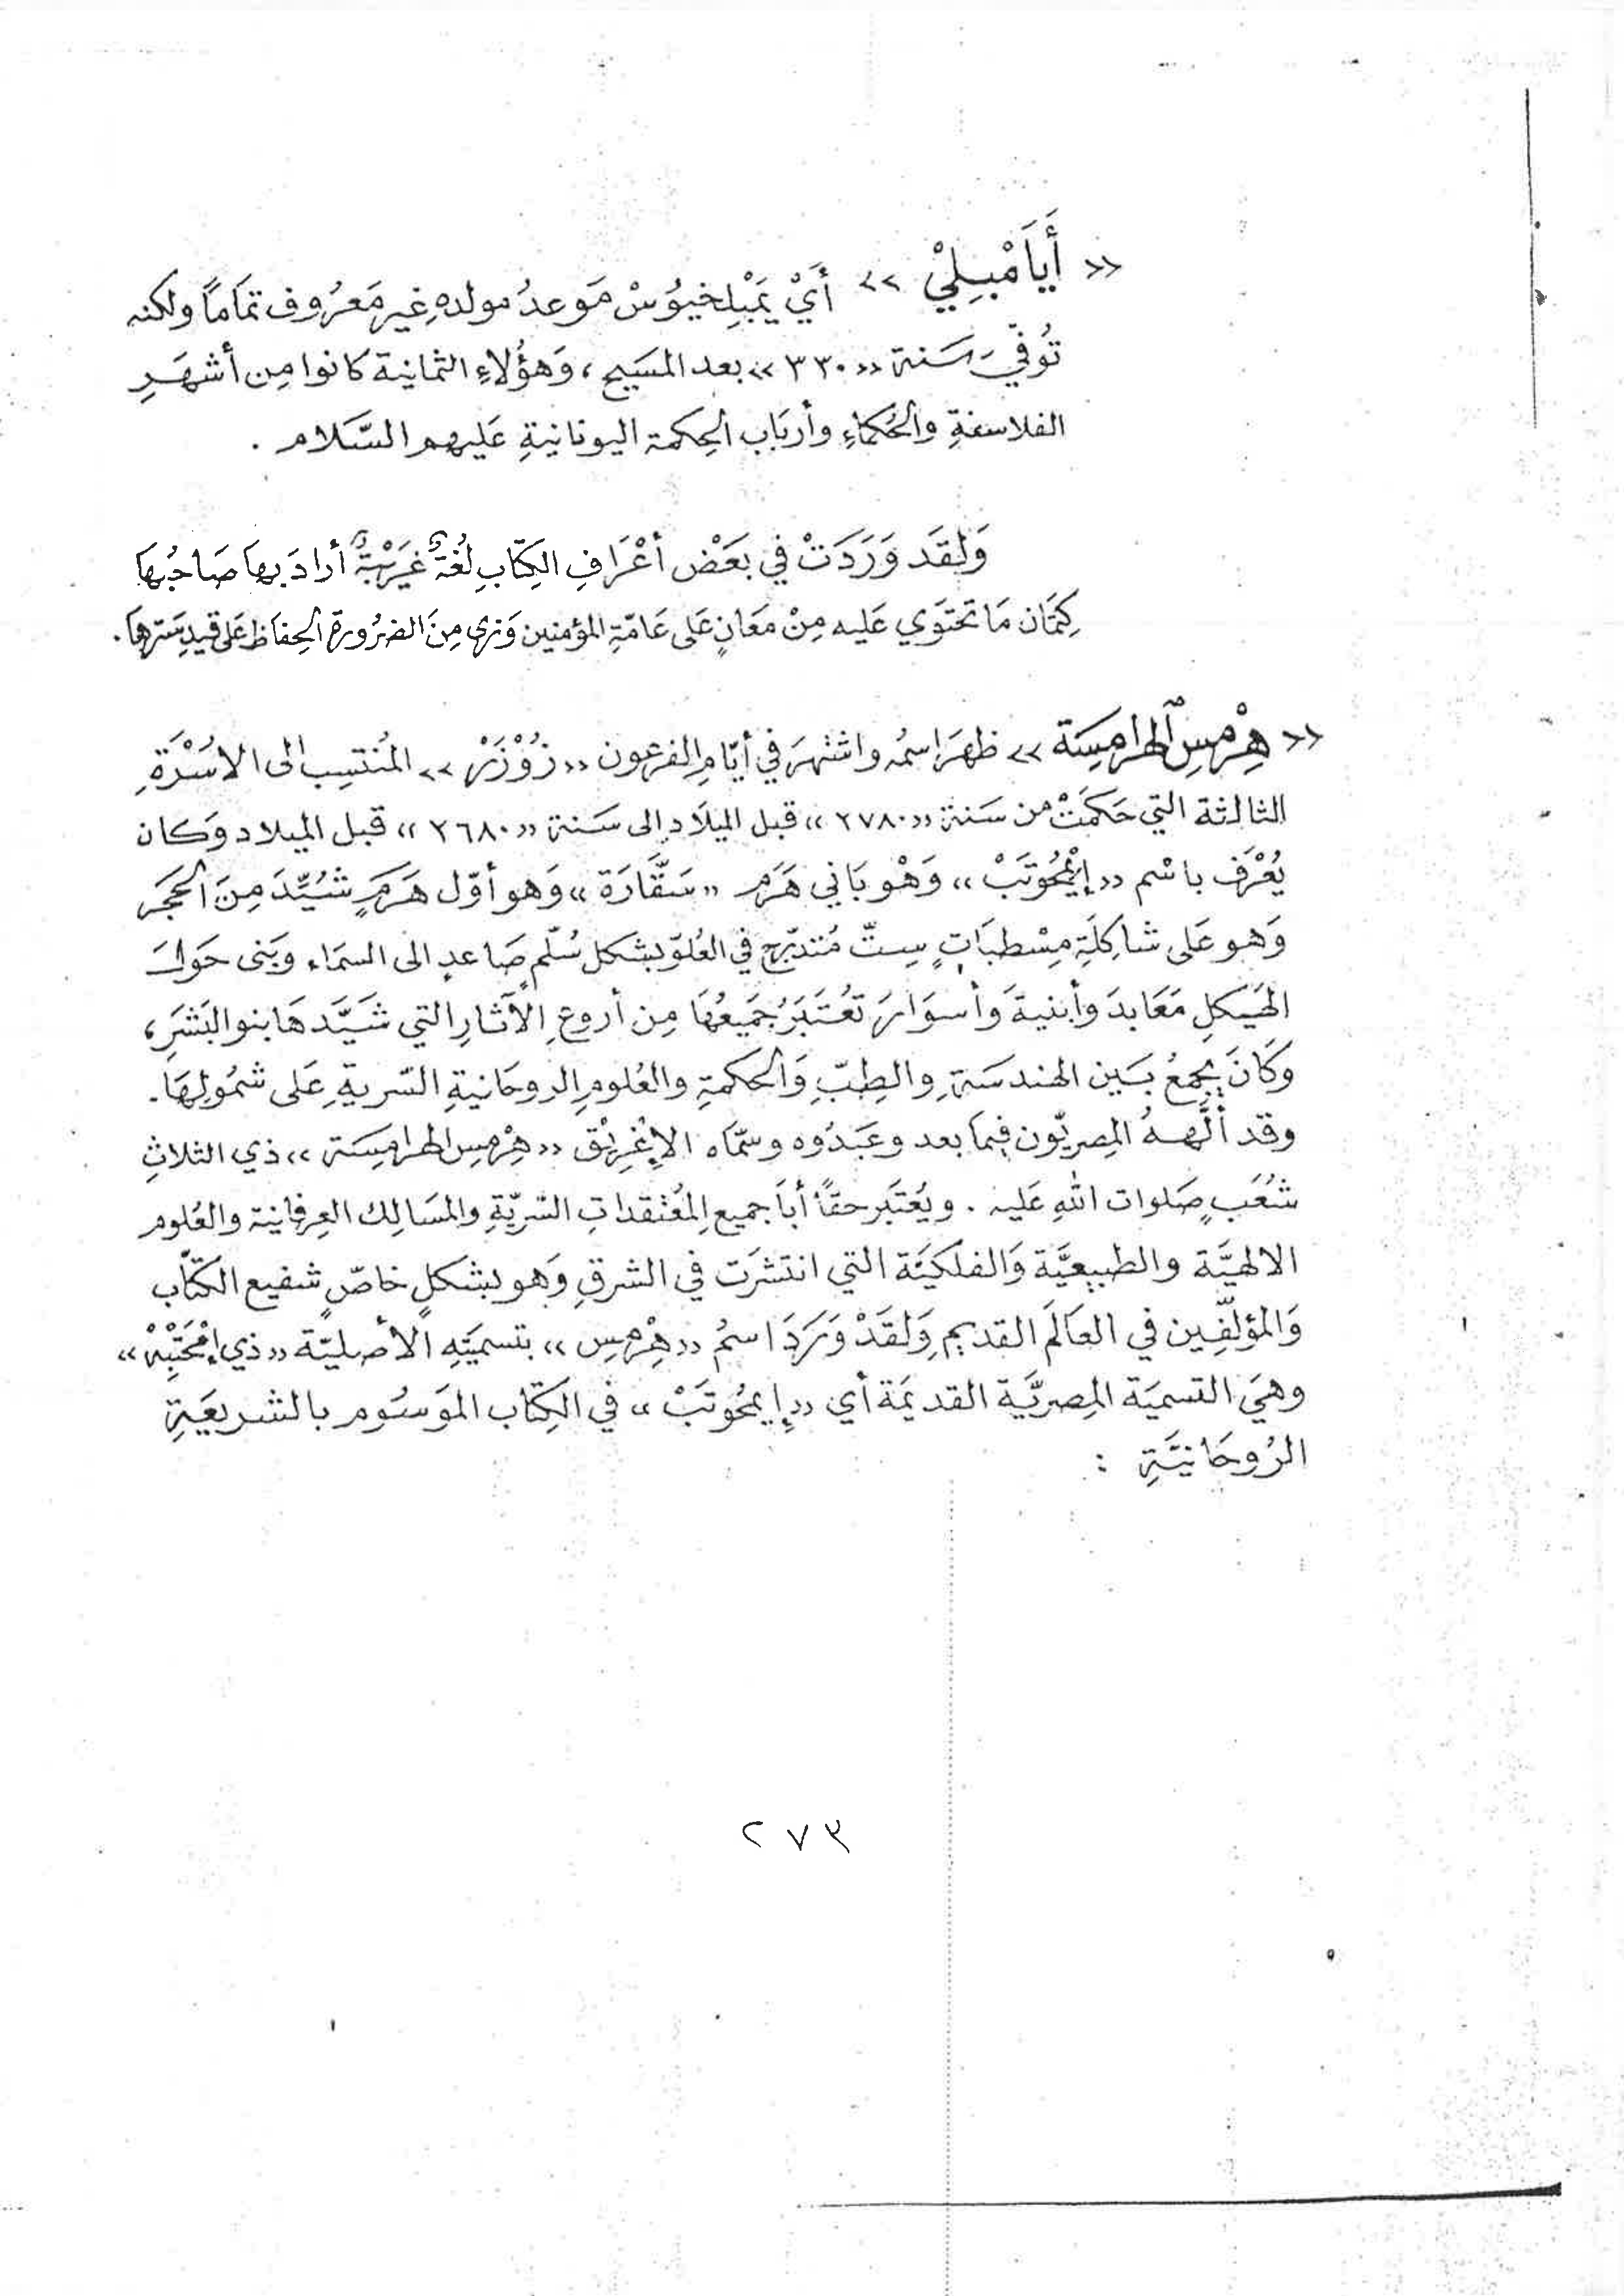 «أَيَامْبِلِيْ» أَيْ يَمْبْلِخيُوُسْ مَوعدُ مولدهِ غير مَعْرُوف تمَاماً ولكنه
تُوفّيَ سَنة «٣٣٠» بعد المسَيح، وَهؤُلاءِ الثمانية كانوا مِن أشهَرِ
الفلاسفةِ والحُكماءِ وأربَاب الحِكمة اليونانيةِ عَليهم السَّلام .
وَلقَد وَرَدَتْ في بعَضْ أعْرَافِ الكِتَابِ لُغةٌ غَريْبةٌ أرادَ بهَا صَاحبُهَا
كِتمَان مَا تحتوَي عَليه مِنْ معَانٍ عَلى عَامّةِ المؤمنين وَنرى مِنَ الضرُورة الحِفاظ عَلى قيدِ سَترهَا.
«هِرْمسِ الهرامِسَة» ظهَرَ اسمُه واشتهرَ في أيّامِ الفرعون «زُوْزَرْ» المُنتسِب الى الاسُرْةَِ
الثالثة التي حَكمَتْ من سَنة «٢٧٨٠» قبل الميلاَد إلى سَنة «٢٦٨٠» قبل الميلاد وَكان
يُعْرَف باسْم «إيْمْحُوتَبْ» وَهْو بَاني هَرَم «سَقَّارَة» وَهو أوّل هَرَمٍ شُيِّدَ مِنَ الحَجَر
وَهو عَلى شاكِلَةِ مِسْطبَاتٍ سِتّ مُتدرّج في العُلوّ بشكل سُلّمٍ صَاعدٍ الى السمَاء وبَنى حَولَ
الهَيكلِ مَعَابدَ وأبنيةَ وَأسوَارَ تعُتَبَرُ جَميعُهَا مِن أروعِ الآثارِ التي شَيَّدهَا بنو البَشَرِ،
وَكَانَ يجمعُ بَين الهندسَةِ والطِبّ وَالحكمةِ والعُلومِ الروحَانيةِ السّريةِ عَلى شمُولِهَا.
وقد ألَّههُ المِصريّون فيمَا بعد وعَبَدُوه وسمّاه الإغْرِيْق «هِرْمسِ الهرامِسَة» ذي الثلاثِ
شُعَبٍ صَلوات اللهِ عَليه . ويُعْتَبر حقاً أبَا جميع المُعْتقداتِ السّريّةِ والمَسَالِك العِرفانية والعُلوم
الالهيَّة والطبيعيَّة وَالفلَكيَّة التي انتشرَت في الشرقِ وَهو بشكلٍ خاصّ شفيع الكتّاب
وَالمؤلّفِين في العَالَم القديم وَلقَدْ وَرَدَ اسمُ «هِرْمسِ» بتسميَتهِ الأصْليّة «ذي إمْحَتِبْهْ»
وهيَ التسميَة المِصريَّة القديمَة أي «إيمْحُوتَبْ» في الكِتاب الموَسُوم بالشريعَةِ
الرُوحَانيَّةِ :
٢٧٣